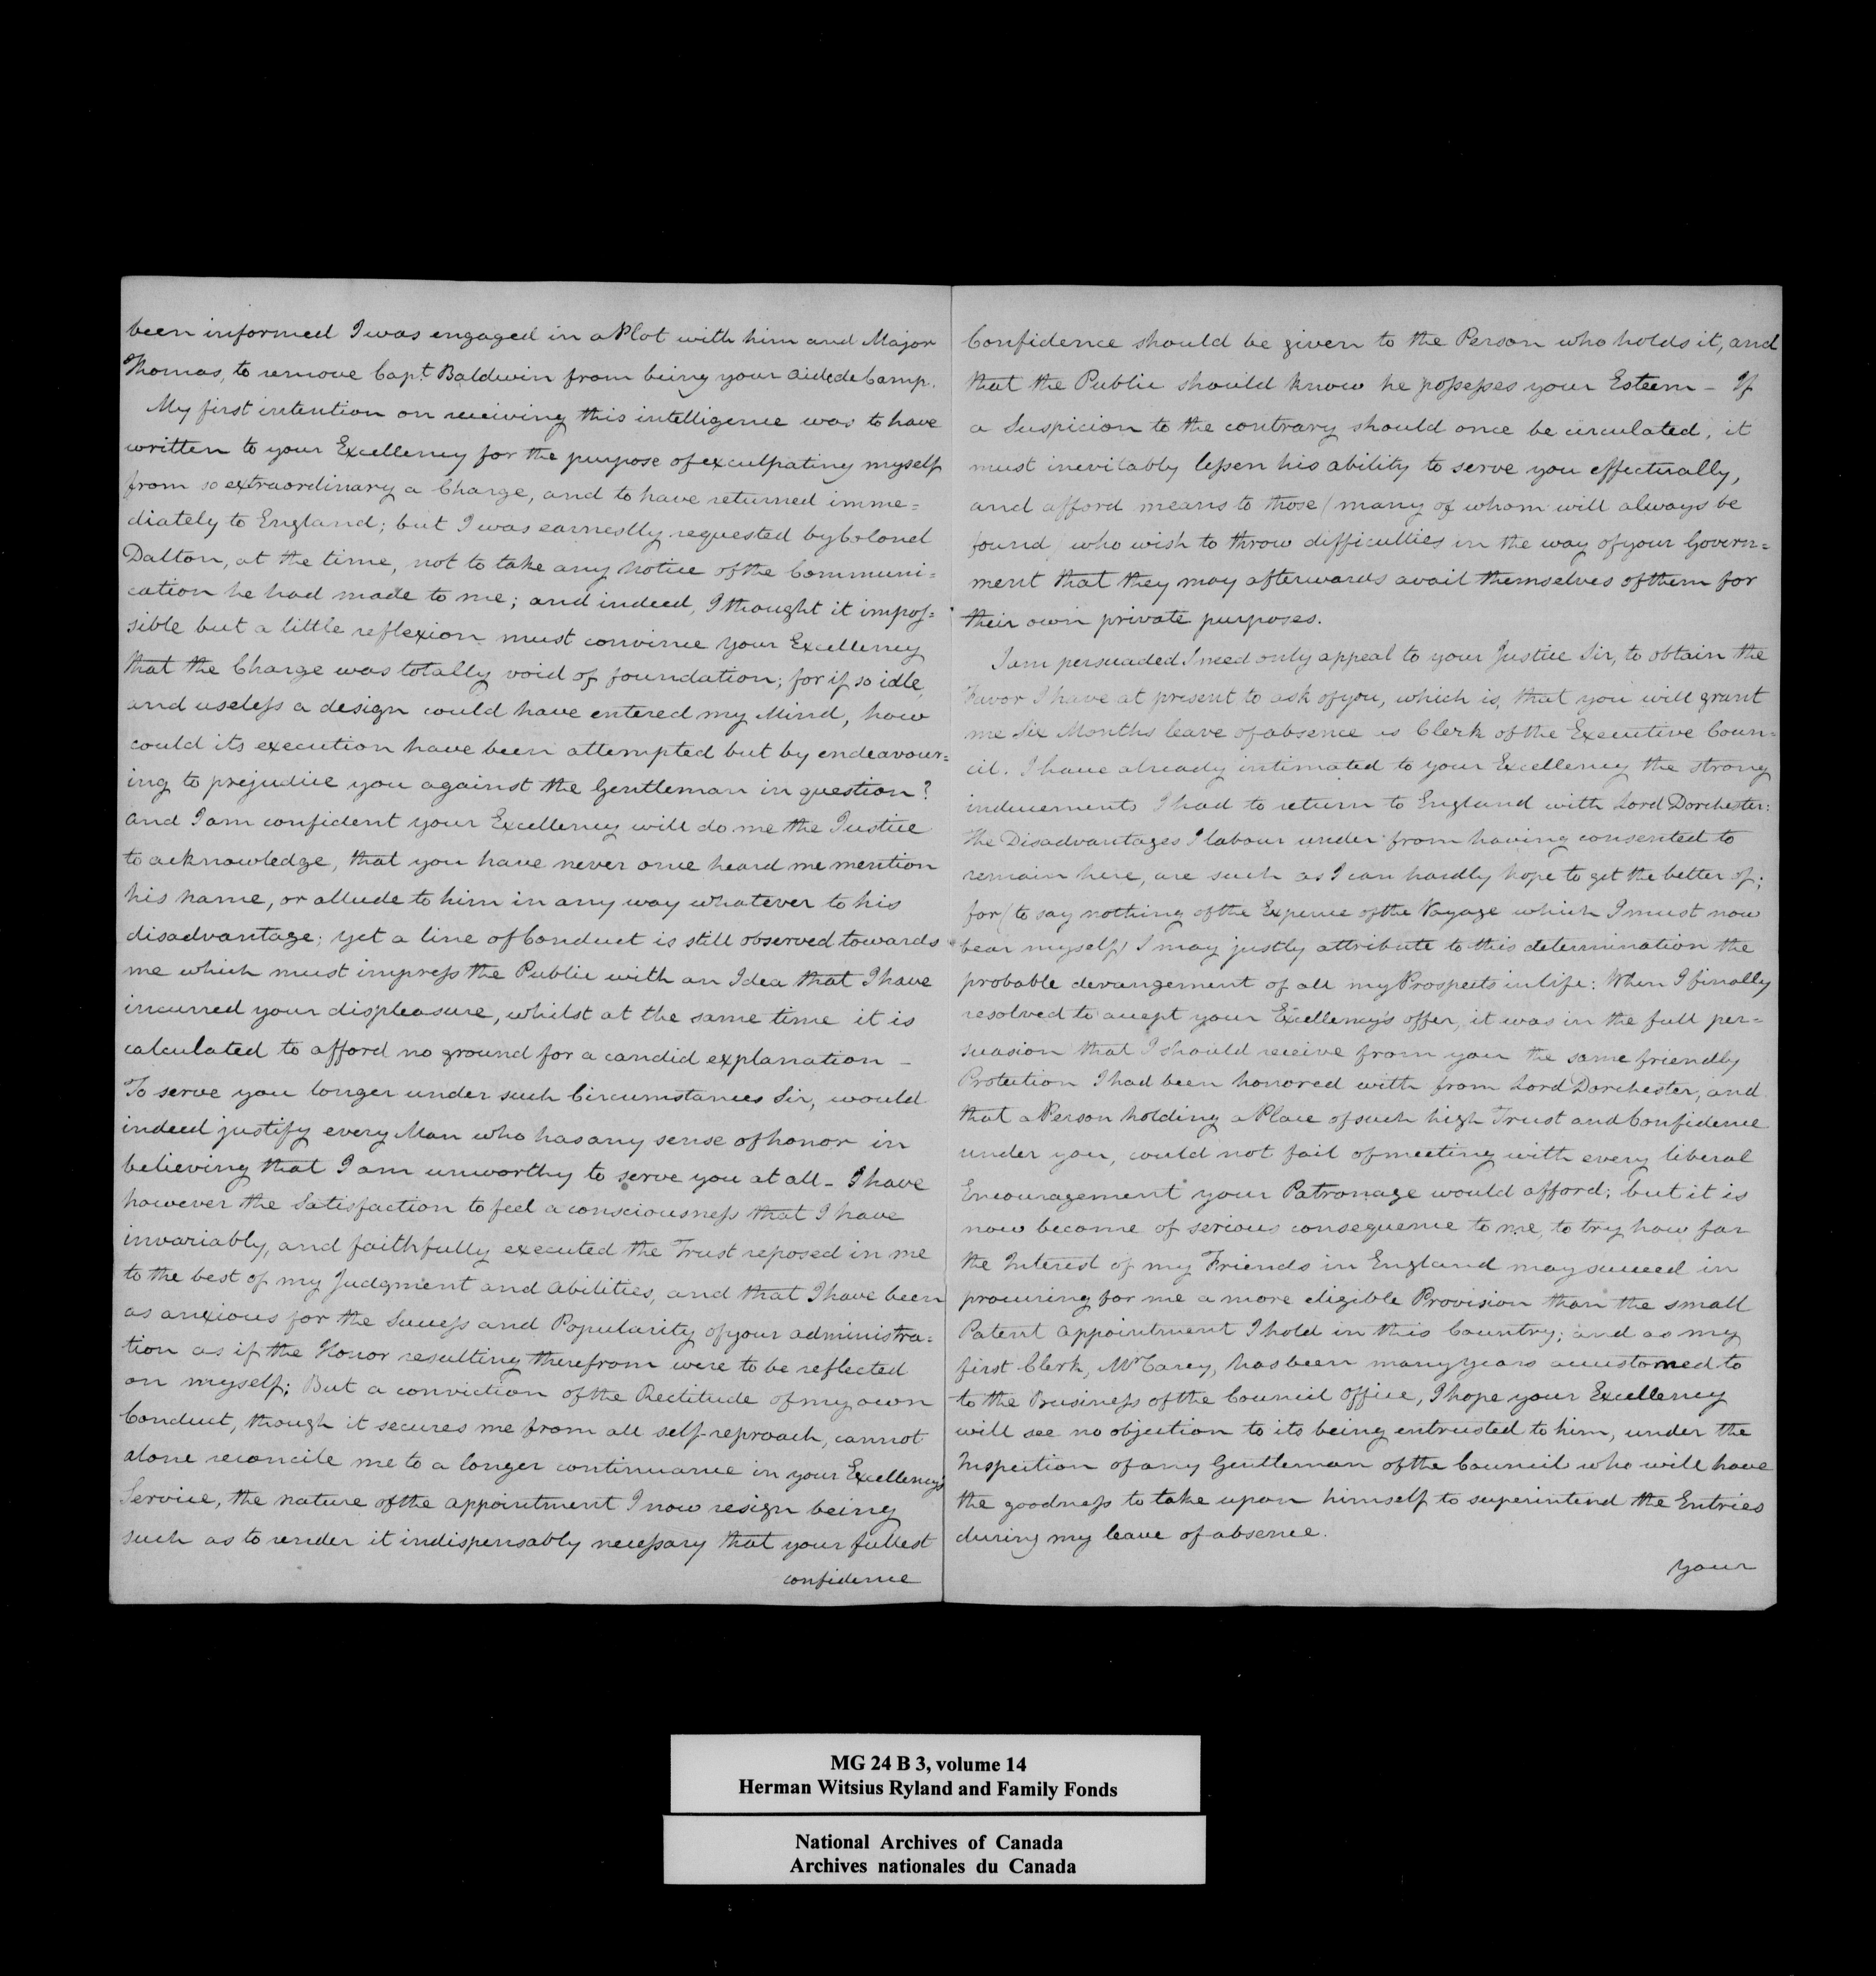 been informed I was engaged in a Plot with him and Major
Thomas, to remove Capt. Baldwin from being your aidedeCamp.
My first intention on receiving this intelligence was to have
written to your Excellency for the purpose of exculpating myself
from so extraordinary a Charge, and to have returned imme=
diately to England; but I was earnestly requested by Colonel
Dalton, at the time, not to take any notice of the Communi=
cation he had made to me; and indeed, I thought it impos=
sible but a little reflexion must convince your Excellency
that the Charge was totally void of foundation; for if so idle,
and useless a design could have entered my Mind, how
could its execution have been attempted but by endeavour=
ing to prejudice you against the Gentleman in question?
and I am confident your Excellency will do me the Justice
to acknowledge, that you have never once heard me mention
his name, or allude to him in any way whatever to his
disadvantage; yet a line of Conduct is still observed towards
me which must impress the Public with an Idea that I have
incurred your displeasure, whilst at the same time it is
calculated to afford no ground for a candid explanation –
To serve you longer under such Circumstances Sir, would
indeed justify every Man who has any sense of honor in
believing that I am unworthy to serve you at all – I have
however the Satisfaction to feel a consciousness that I have
invariably, and faithfully executed the Trust reposed in me
to the best of my Judgment and abilities, and that I have been
as anxious for the Success and Popularity of your administra=
tion as if the Honor resulting therefrom were to be reflected
on myself; But a conviction of the Rectitude of my own
Conduct, though it secures me from all self-reproach, cannot
alone reconcile me to a longer continuance in your Excellency's
Service, the nature of the appointment I now resign being
such as to render it indispensably necessary that your fullest
confidence
Confidence should be given to the Person who holds it, and
that the Public should know he possesses your Esteem – If
a Suspicion to the contrary should once be circulated, it
must inevitably lessen his ability to serve you effectually,
and afford means to those (many of whom will always be
found) who wish to throw difficulties in the way of your Govern=
ment that they may afterwards avail themselves of them for
their own private purposes.
I am persuaded I need only appeal to your Justice Sir, to obtain the
Favor I have at present to ask of you, which is, that you will grant
me Six Months leave of absence as Clerk of the Executive Coun=
cil. I have already intimated to your Excellency the strong
inducements I had to return to England with Lord Dorchester:
the Disadvantages I labour under from having consented to
remain here, are such as I can hardly hope to get the better of;
for (to say nothing of the Expence of the Voyage which I must now
bear myself) I may justly attribute to this determination the
probable derangement of all my Prospects in life: When I finally
resolved to accept your Excellency's offer, it was in the full per=
suasion that I should receive from you the same friendly
Protection I had been honored with from Lord Dorchester, and
that a Person holding a Place of such high Trust and Confidence
under you, could not fail of meeting with every liberal
Encouragement your Patronage would afford; but it is
now become of serious consequence to me, to try how far
the Interest of my Friends in England may succeed in
procuring for me a more eligible Provision than the small
Patent appointment I hold in this Country; and as my
first Clerk, Mr Carey, has been many years accustomed to
to the Business of the Council Office, I hope your Excellency
will see no objection to its being entrusted to him, under the
Inspection of any Gentleman of the Council who will have
the goodness to take upon himself to superintend the Entries
during my leave of absence.
your
MG 24 B 3, volume 14
Herman Witsius Ryland and Family Fonds
National Archives of Canada
Archives nationales du Canada